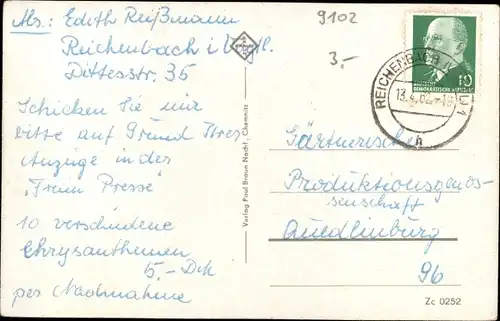 Abs.: Edith Reißmann
Reichenbach i. Vogtl.
Dittesstr. 35
Schicken Sie mir
bitte auf Grund Ihrer
Anzeige in der
"Freien Presse"
10 verschiedene
Chrysanthemen
5,- DM
per Nachnahme
Verlag Paul Braun Nachf., Chemnitz
9102
3.-
REICHENBACH
13.4.62
h
10
DEMOKRATISCHE
Gärtnerische
Produktionsgenos-
senschaft
Quedlinburg
96
Zc 0252